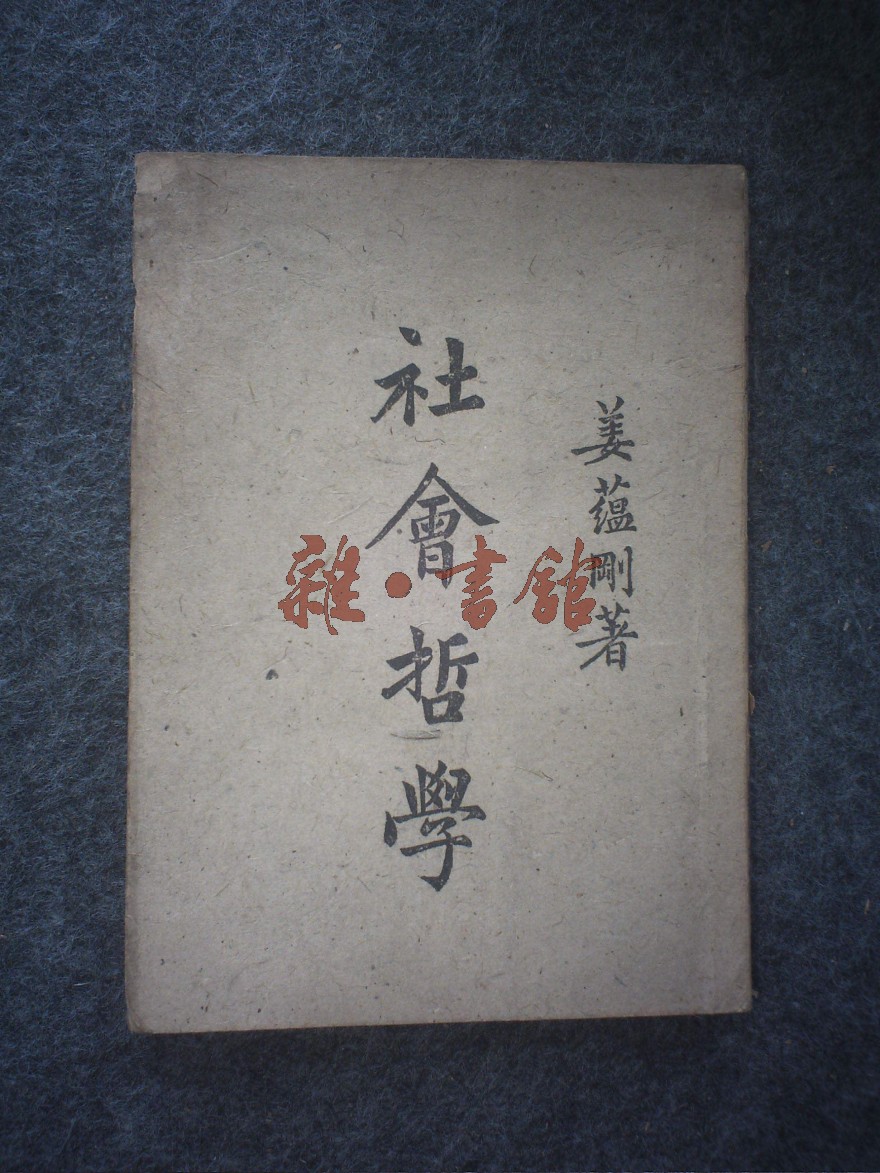 姜蘊剛著
社會哲學
雜·書館